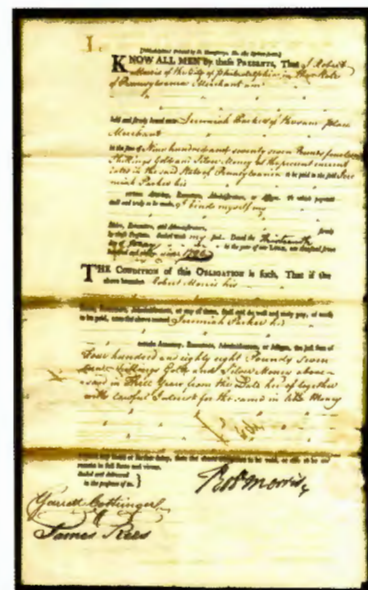 1.
[Philadelphia: Printed by D. Humphreys,
KNOW ALL MEN by these PRESENTS, That I Robert
Morris of the City of Philadelphia in the State
of Pennsylvania Merchant am
held and firmly bound unto Jeremiah Parker of the same place
Merchant
in the sum of Nine hundred and seventy seven Pounds fourteen
Shillings Gold and Silver Money at the present current
rates in the said State of Pennsylvania to be paid to the said Jere
miah Parker his
certain Attorney, Executors, Administrators, or Assigns: To which payment
well and truly to be made, I bind myself my
Heirs, Executors, and Administrators, firmly
by these Presents. Sealed with my Seal. Dated the Thirteenth
day of in the year of our LORD, one thousand seven
hundred and
THE CONDITION of this OBLIGATION is such, That if the
above bounden Robert Morris his
Heirs, Executors, Administrators, or any of them, shall and do well and truly pay, or cause
to be paid, unto the above named Jeremiah Parker his
certain Attorney, Executors, Administrators, or Assigns, the just sum of
Four hundred and eighty eight Pounds Seven
Shillings Gold and Silver Money above
said in Three Years from the Date hereof together
with Lawful Interest for the same in like Money
without any fraud or further delay, then the above obligation to be void, or else to be and
remain in full force and virtue.
Sealed and delivered
in the presence of us.
Robt Morris
Garrett Cottringer
James Rees